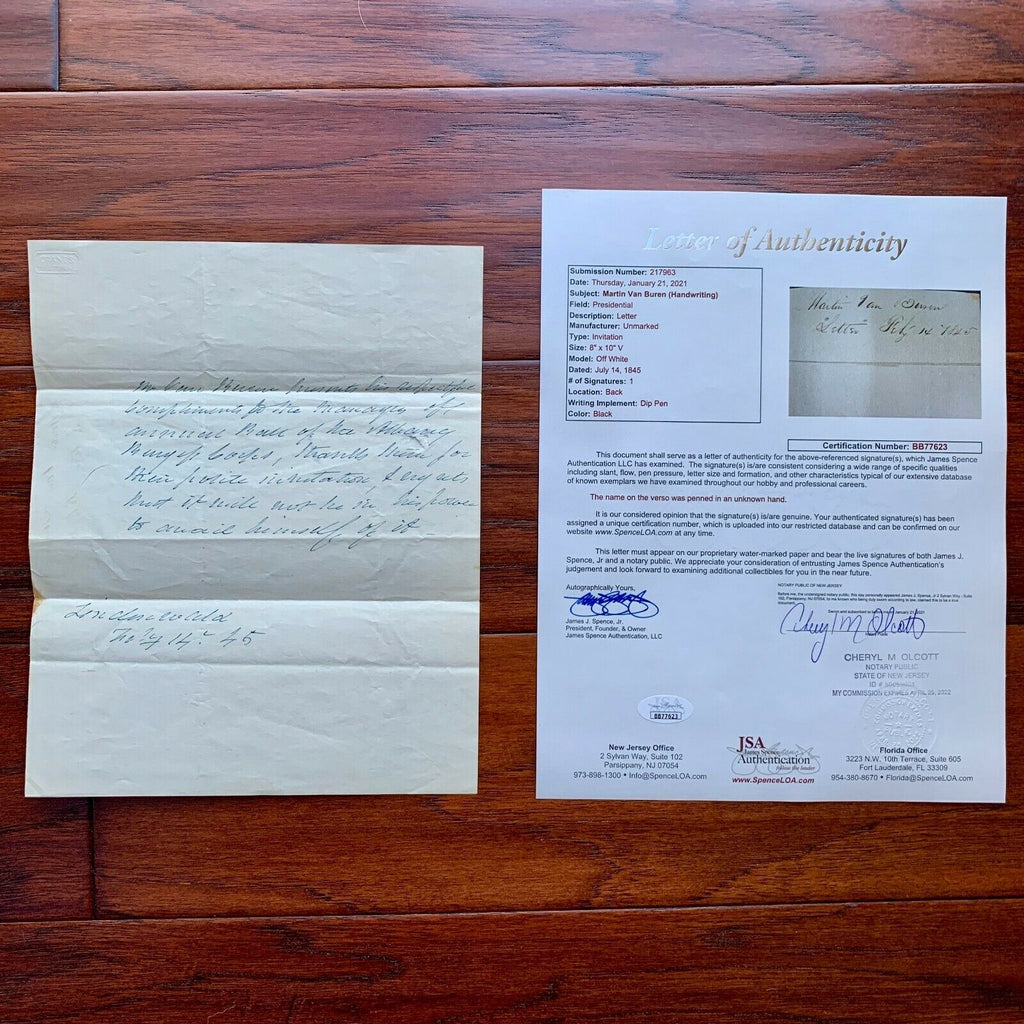 Mr Van Buren presents his respectful
compliments to the Managers of
annual Ball of the Albany
Burgess Corps, thanks them for
their polite invitation & regrets
that it will not be in his power
to avail himself of it
Lindenwald
Feby 14th 45
Letter of Authenticity
Submission Number: 217963
Date: Thursday, January 21, 2021
Subject: Martin Van Buren (Handwriting)
Field: Presidential
Description: Letter
Manufacturer: Unmarked
Type: Invitation
Size: 8" x 10" V
Model: Off White
Dated: July 14, 1845
# of Signatures: 1
Location: Back
Writing Implement: Dip Pen
Color: Black
Martin Van Buren
Letter Feby 14 1845
Certification Number: BB77623
This document shall serve as a letter of authenticity for the above-referenced signature(s), which James Spence
Authentication LLC has examined. The signature(s) is/are consistent considering a wide range of specific qualities
including slant, flow, pen pressure, letter size and formation, and other characteristics typical of our extensive database
of known exemplars we have examined throughout our hobby and professional careers.
The name on the verso was penned in an unknown hand.
It is our considered opinion that the signature(s) is/are genuine. Your authenticated signature(s) has been
assigned a unique certification number, which is uploaded into our restricted database and can be confirmed on our
website www.SpenceLOA.com at any time.
This letter must appear on our proprietary water-marked paper and bear the live signatures of both James J.
Spence, Jr and a notary public. We appreciate your consideration of entrusting James Spence Authentication's
judgement and look forward to examining additional collectibles for you in the near future.
Autographically Yours,
James J. Spence, Jr.
President, Founder, & Owner
James Spence Authentication, LLC
NOTARY PUBLIC OF NEW JERSEY
Before me, the undersigned notary public, this day personally appeared James J. Spence, Jr 2 Sylvan Way - Suite
102, Parsippany, NJ 07054, to me known who being duly sworn according to law, claimed this to be a true
document.
Sworn and subscribed to before me January 21, 2021
Cheryl M Olcott
Notary Public
CHERYL M OLCOTT
NOTARY PUBLIC
STATE OF NEW JERSEY
ID #
MY COMMISSION EXPIRES APRIL 25, 2022
JSA
BB77623
New Jersey Office
2 Sylvan Way, Suite 102
Parsippany, NJ 07054
973-898-1300 • Info@SpenceLOA.com
JSA
James Spence
Authentication
follow the leader
www.SpenceLOA.com
Florida Office
3223 N.W. 10th Terrace, Suite 605
Fort Lauderdale, FL 33309
954-380-8670 • Florida@SpenceLOA.com